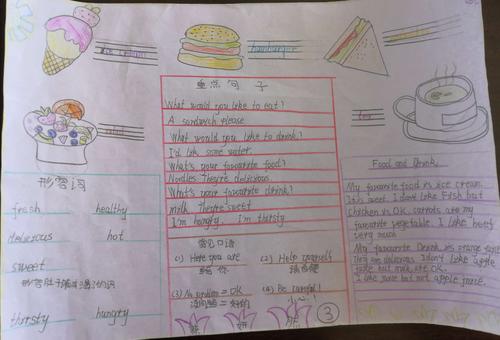 ice cream
hamburger
tea
形容词
fresh healthy
delicious hot
sweet
形容肚子饿或渴的词
thirsty hungry
重点句子
What would you like to eat?
A sandwich please.
What would you like to drink?
I'd like some water.
What's your favourite food?
Noodles. They're delicious.
What's your favourite drink?
Milk. They're sweet
I'm hungry. I'm thirsty
常见口语
(1) Here you are (2) Help yourself
给你 请自便
(3) No problem = OK (4) Be careful!
没问题 = 好的 小心!
③
Food and Drink
My favourite food is ice cream.
It is sweet. I don't like Fish but
chicken is OK. carrots are my
favourite vegetable. I like
very much
My favourite Drink is orange
They are delicious. I don't like apple
but milk are OK.
I like juice but not apple juice.